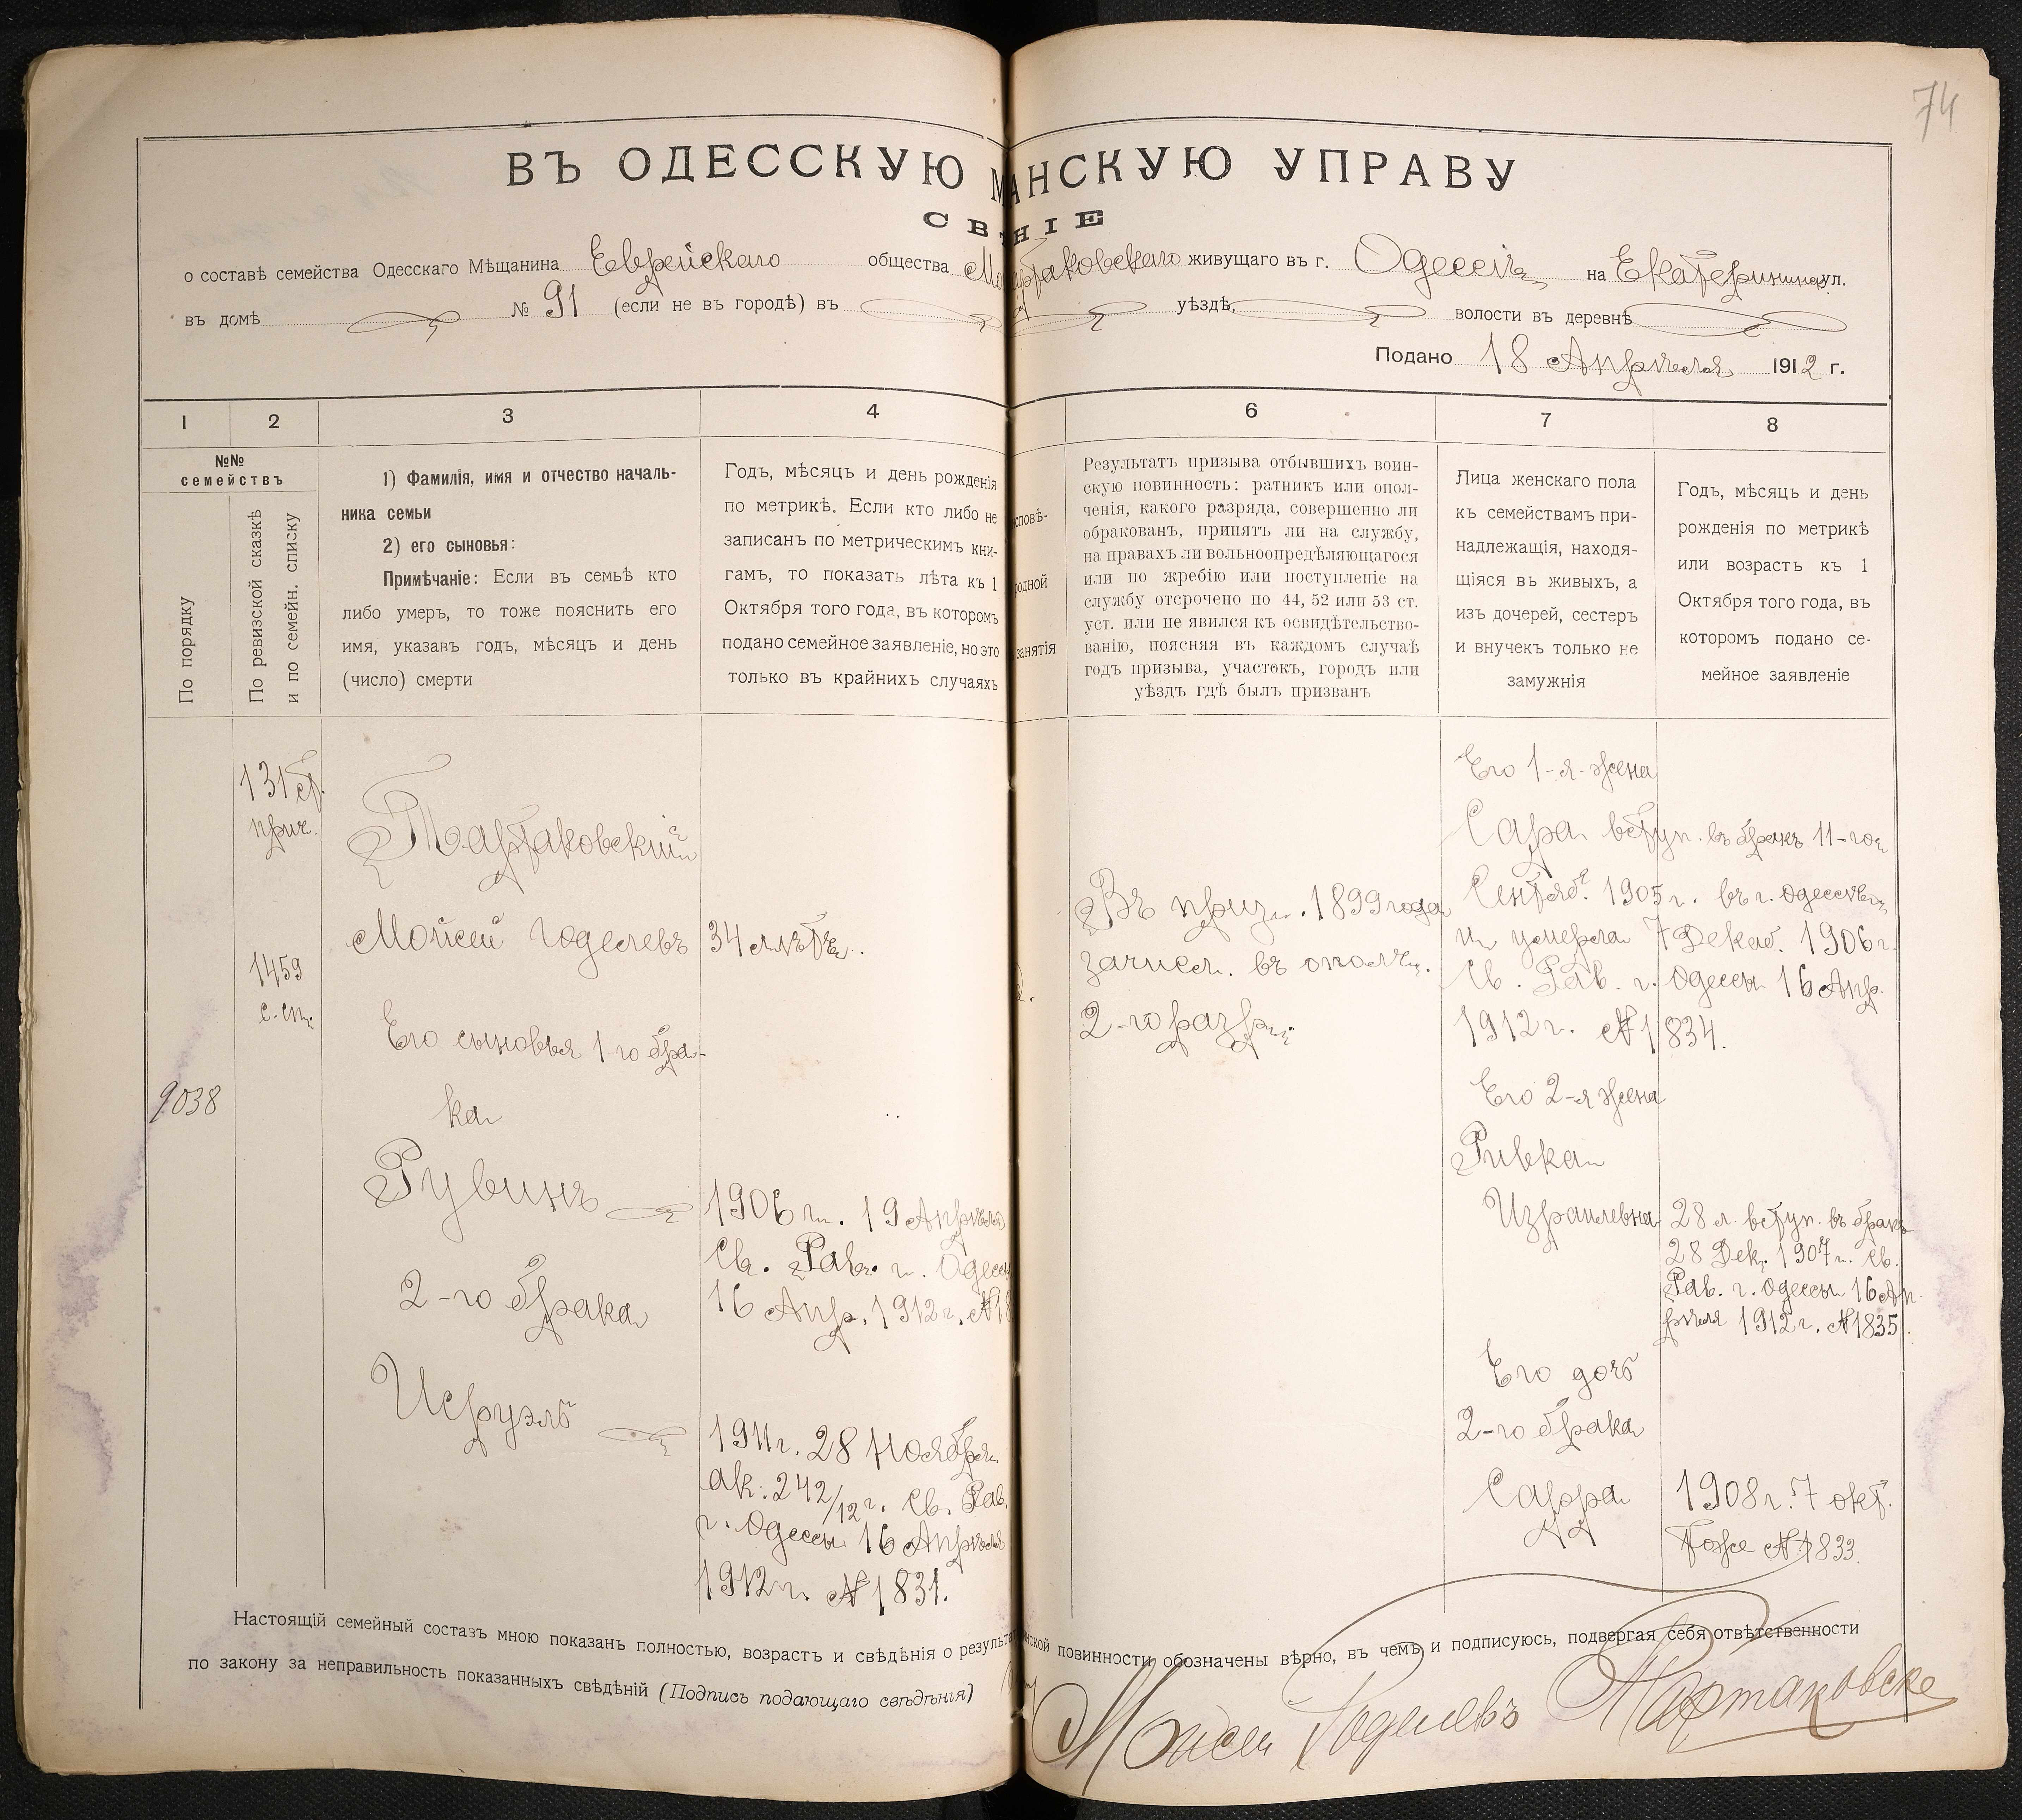 74
ВЪ ОДЕССКУЮ М АНСКУЮ УПРАВУ
СВ НІЕ
о составѣ семейства Одесскаго Мѣщанина Еврейскаго общества живущаго въ г. Одессѣ на Екатеринин. ул.
въ домѣ № 91 (если не въ городѣ) въ уѣздѣ, волости въ деревнѣ
Подано 18 Апрѣля 1912 г.
1 2 3 4 6 7 8
№№
семействъ
По порядку
По ревизской сказкѣ
и по семейн. списку
1) Фамилія, имя и отчество началь-
ника семьи
2) его сыновья:
Примѣчаніе: Если въ семьѣ кто
либо умеръ, то тоже пояснить его
имя, указавъ годъ, мѣсяцъ и день
(число) смерти
Годъ, мѣсяцъ и день рожденія
по метрикѣ. Если кто либо не
записанъ по метрическимъ кни-
гамъ, то показать лѣта къ 1
Октября того года, въ которомъ
подано семейное заявленіе, но это
только въ крайнихъ случаяхъ
сповѣ-
родной
занятія
Результатъ призыва отбывшихъ воин-
скую повинность: ратникъ или опол-
ченія, какого разряда, совершенно ли
обракованъ, принятъ ли на службу,
на правахъ ли вольноопредѣляющагося
или по жребію или поступленіе на
службу отсрочено по 44, 52 или 53 ст.
уст. или не явился къ освидѣтельство-
ванію, поясняя въ каждомъ случаѣ
годъ призыва, участокъ, городъ или
уѣздъ гдѣ былъ призванъ
Лица женскаго пола
къ семействамъ при-
надлежащія, находя-
щіяся въ живыхъ, а
изъ дочерей, сестеръ
и внучекъ только не
замужнія
Годъ, мѣсяцъ и день
рожденія по метрикѣ
или возрастъ къ 1
Октября того года, въ
которомъ подано се-
мейное заявленіе
9038
131 ст.
прич.
1459
с. сп.
Тартаковскій
Мойсей Годелевъ
Его сыновья 1-го бра-
ка
Рувинъ
2-го брака
Исруэль
34 лѣтъ.
1906 г. 19 Апрѣля
Св. Рав. г. Одессы
16 Апр. 1912 г. №18
1911 г. 28 Ноября
ак. 242/12 г. Св. Рав.
г. Одессы 16 Апрѣля
1912 г. №1831.
Въ приз. 1899 года
зачисл. въ ополч.
2-го разр.
Его 1-я жена
Сара вступ. въ бракъ 11-го
Сентяб. 1905 г. въ г. Одессѣ
и умерла 7 Декаб. 1906 г.
Св. Рав. г. Одессы 16 Апр.
1912 г. №1834.
Его 2-я жена
Ривка
Израилевна
28 л. вступ. въ бракъ
28 Дек. 1907 г. Св.
Рав. г. Одессы 16 Ап-
рѣля 1912 г. №1835.
Его дочь
2-го брака
Сарра
1908 г. 7 окт.
Тоже №1833.
Настоящій семейный составъ мною показанъ полностью, возрастъ и свѣдѣнія о результа нской повинности обозначены вѣрно, въ чемъ и подписуюсь, подвергая себя отвѣтственности
по закону за неправильность показанныхъ свѣдѣній (Подпись подающаго свѣдѣнія)
Мойсей Годелевъ Тартаковске